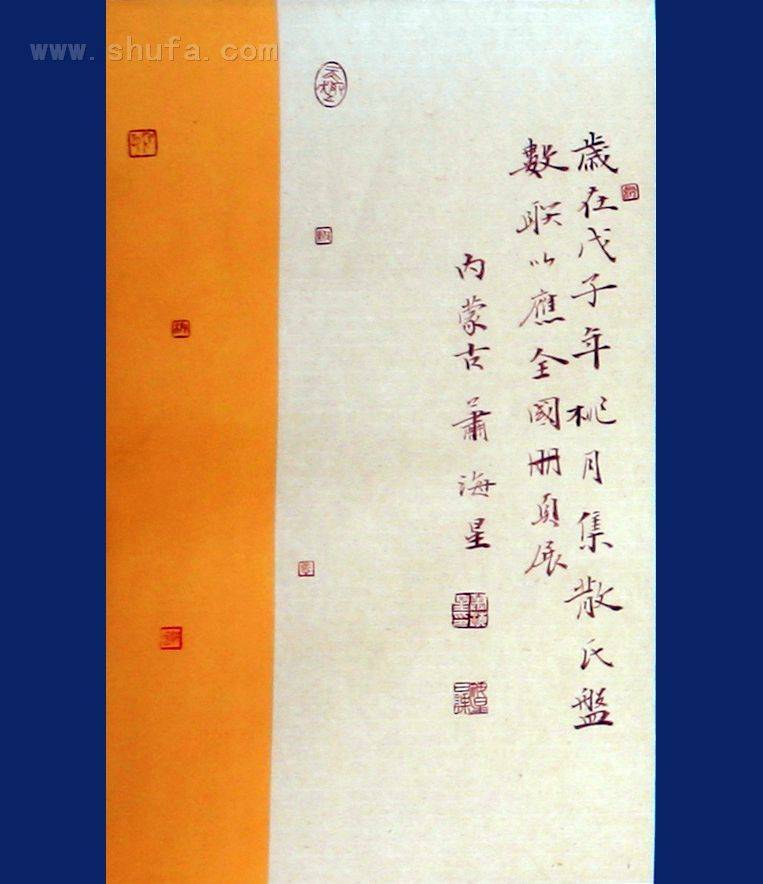 www.shufa.com
歲在戊子年桃月集散氏盤
數联以應全國册頁展
内蒙古蕭海星